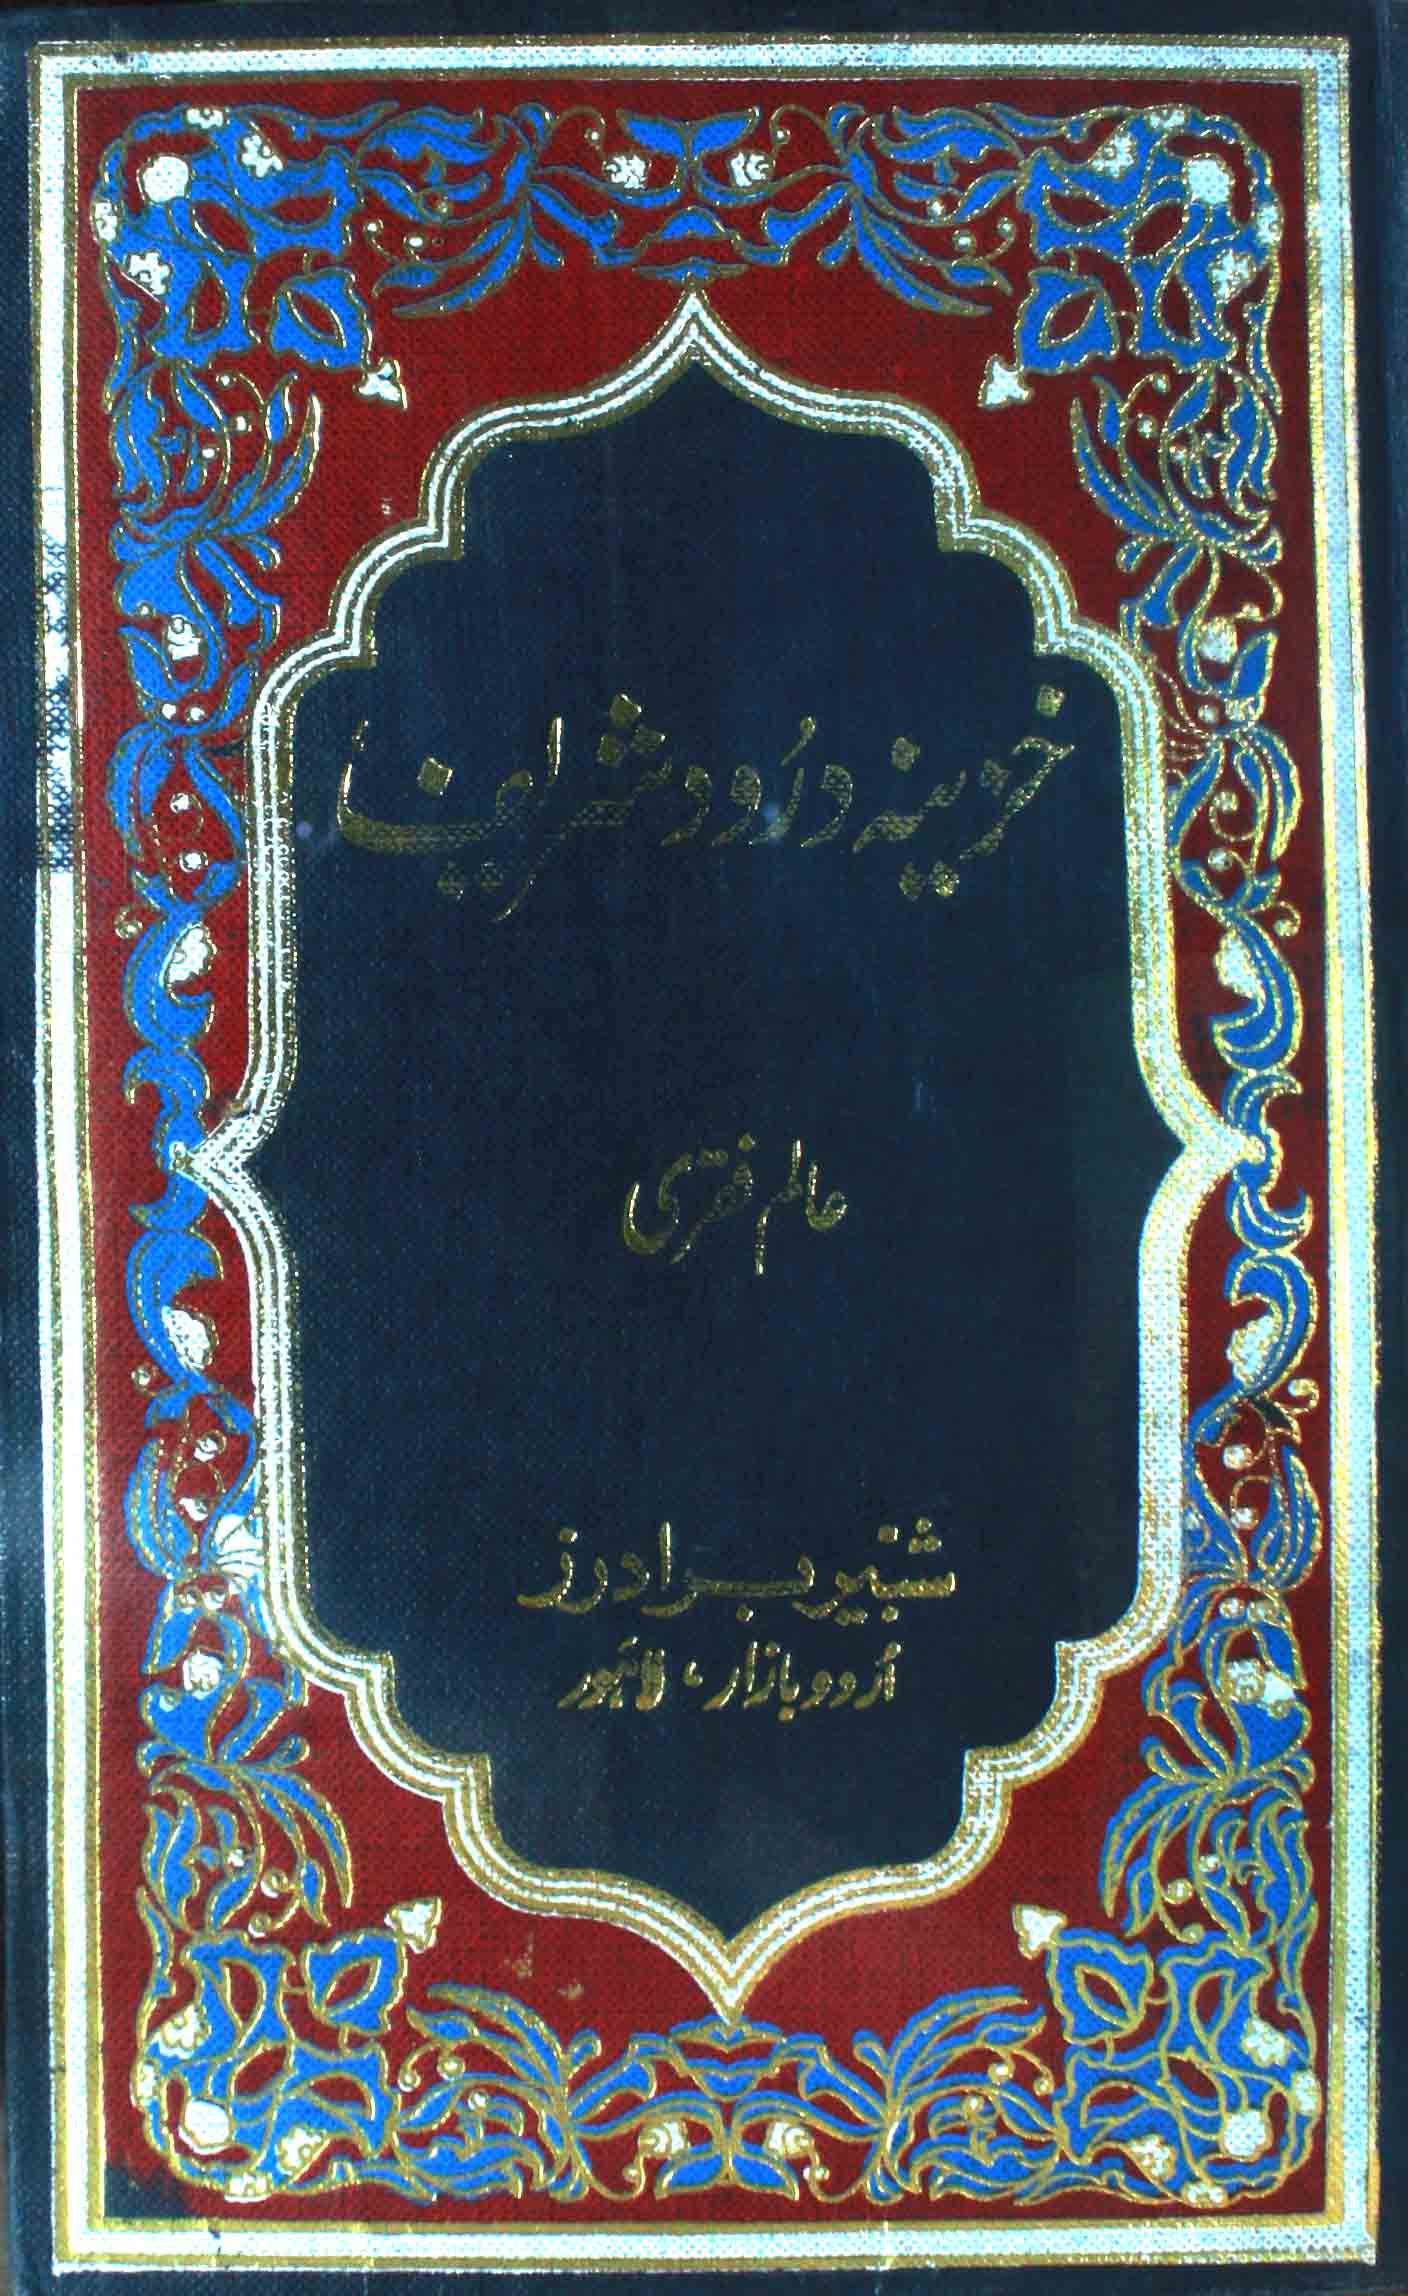 خزینہ درُود شریف
عالم فقری
شبیر برادرز
اُردو بازار، لاہور